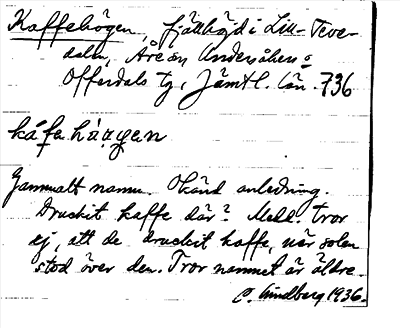 Kaffehögen, fjällhöjd i Lill-Teve-
dalen, Åre sn, Undersåkers o
Offerdals tg, Jämtl. län. 736
káfahǫ̀gen
Gammalt namn. Okänd anledning.
Druckit kaffe där? Medd. tror
ej, att de druckit kaffe, när solen
stod över den. Tror namnet är äldre.
C. Lundberg 1936.